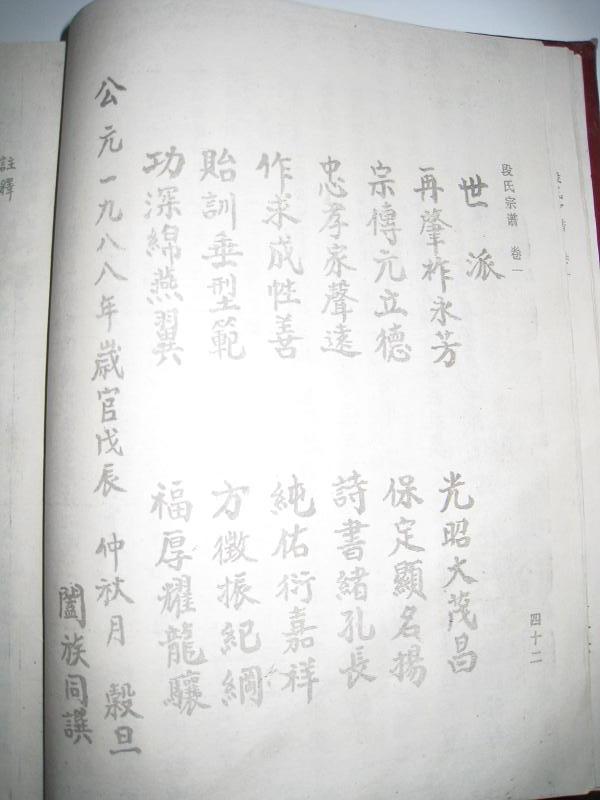 段氏宗谱 卷一
四十二
世派
再肇祚永芳 光昭大茂昌
宗傳元立德 保定顯名揚
忠孝家聲遠 詩書緒孔長
作求成性善 純佑衍嘉祥
貽訓垂型範 方徽振紀綱
功深綿燕翼 福厚耀龍驤
公元一九八八年歲官戊辰 仲秋月 穀旦
闔族同譔
註釋